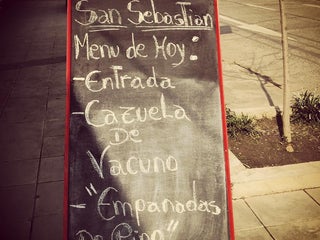 San Sebastian
Menu de Hoy:
-Entrada
-Cazuela
De
Vacuno
-"Empanadas
De Pino"